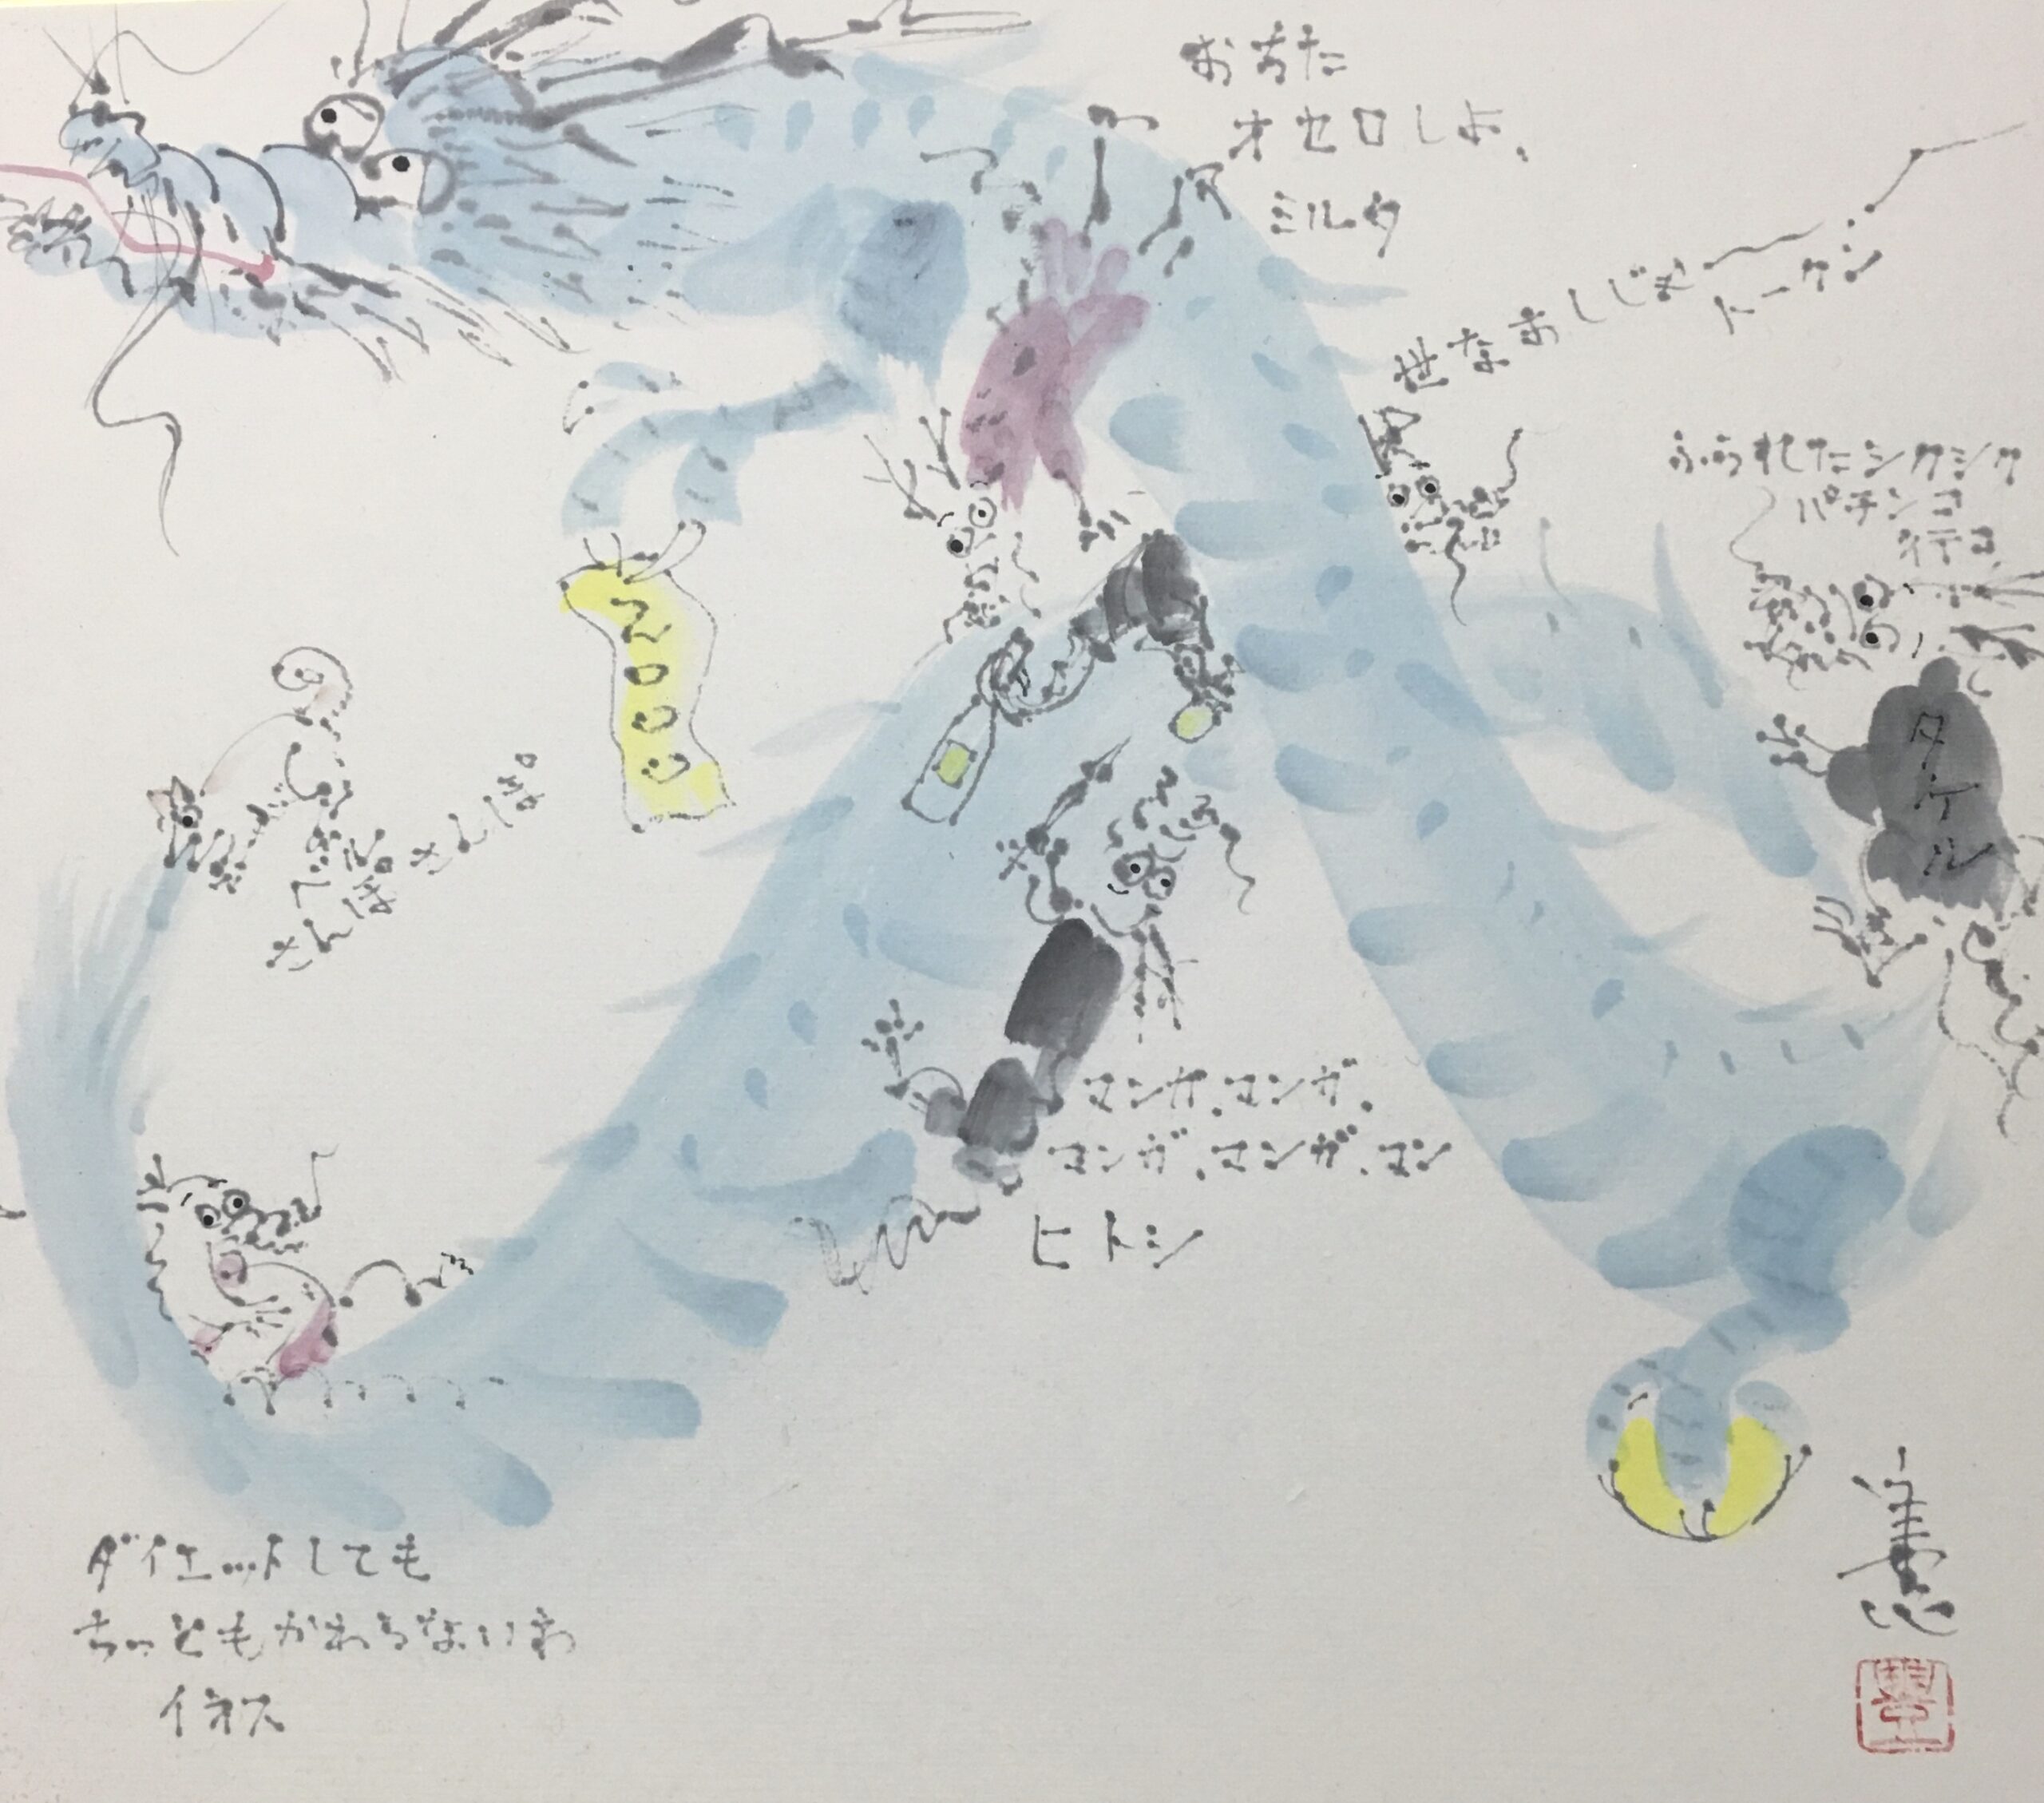 おちた
オセロしよ、
ミルタ
世なおしじゃ
ふられたシクシク
パチンコ
タケル
さんぽ。さんぽ。
マンガ、マンガ、
マンガ、マンガ、マン
ヒトシ
ダイエットしても
ちっともかわらないわ
イネス